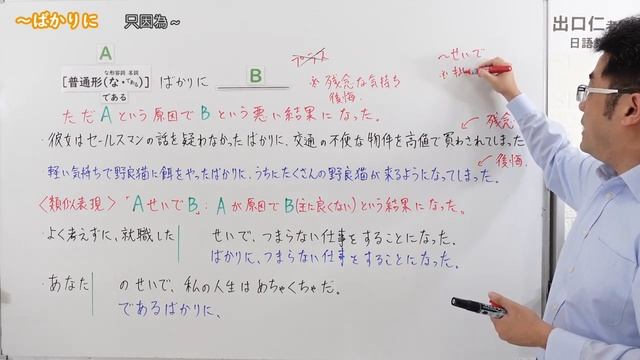 ～ばかりに 只因為～
出口仁
日語教
A
な形容詞 名詞
[普通形(な・である)] ばかりに B
である
～せいで
※残念な気持ち
※
後悔.
ただAという原因でBという悪い結果になった。
残念
・彼女はセールスマンの話を疑わなかったばかりに、交通の不便な物件を高値で買わされてしまった
後悔.
軽い気持ちで野良猫に餌をやったばかりに、うちにたくさんの野良猫が来るようになってしまった。
〈類似表現〉「Aせいで B」: Aが原因でB(主に良くない)という結果になった。
・よく考えずに、就職した せいで、つまらない仕事をすることになった.
ばかりに、つまらない仕事をすることになった.
・あなた のせいで、私の人生はめちゃくちゃだ。
であるばかりに、